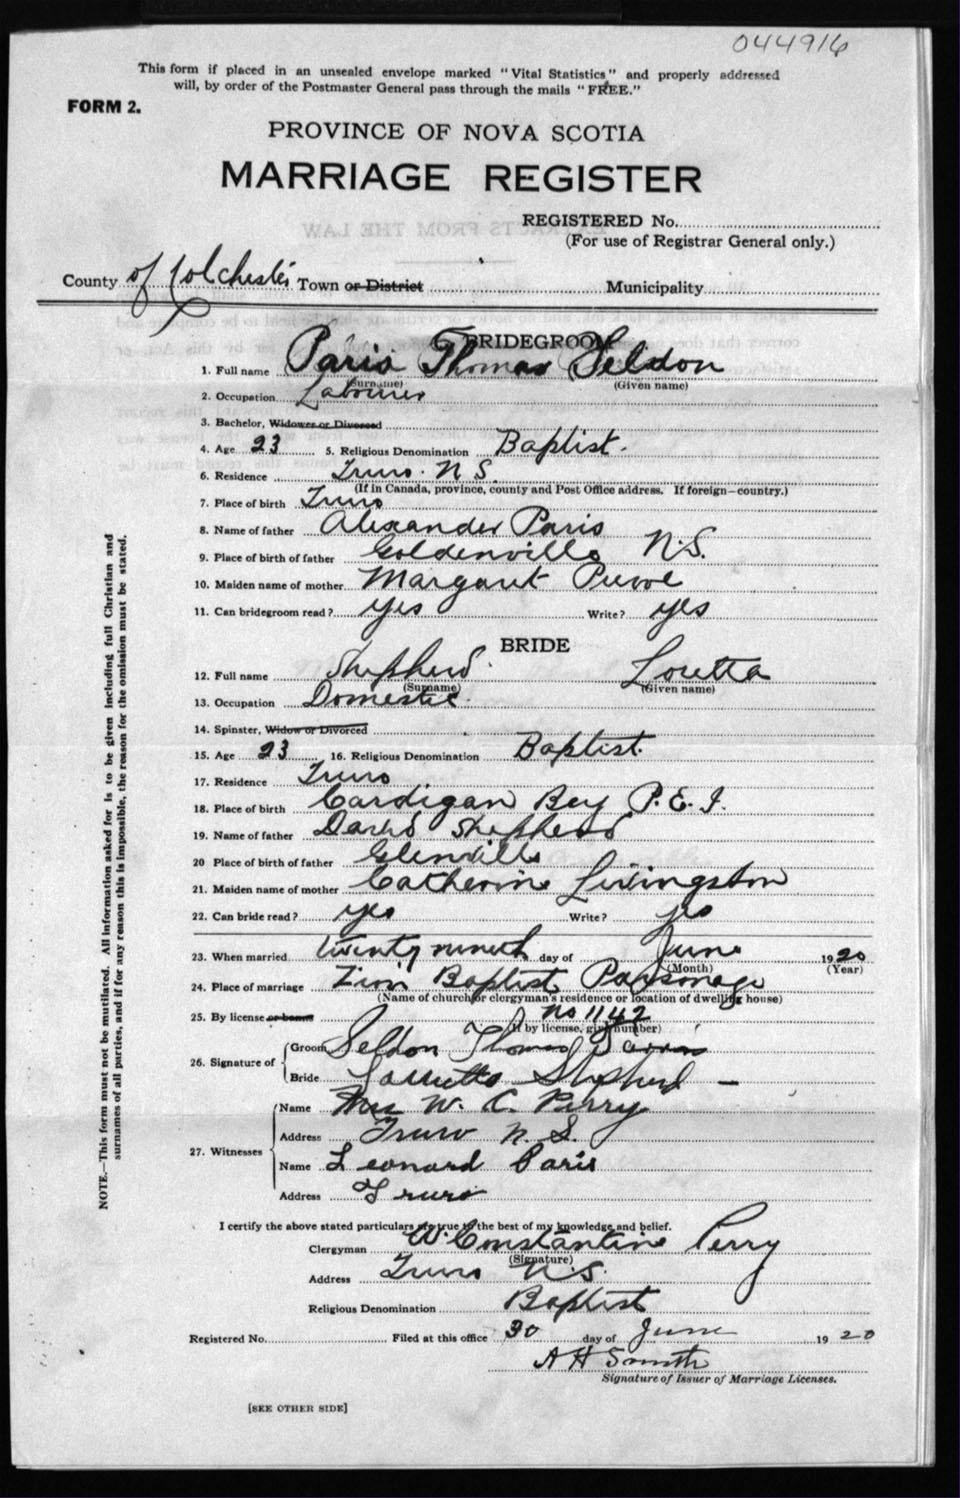 044916
This form if placed in an unsealed envelope marked "Vital Statistics" and properly addressed
will, by order of the Postmaster General pass through the mails "FREE."
FORM 2.
PROVINCE OF NOVA SCOTIA
MARRIAGE REGISTER
REGISTERED No.
(For use of Registrar General only.)
County of Colchester Town or District Municipality
BRIDEGROOM
1. Full name Paris Thomas Seldon
(Surname) (Given name)
2. Occupation Labourer
3. Bachelor, Widower or Divorced
4. Age 23 5. Religious Denomination Baptist.
6. Residence Truro. N S.
(If in Canada, province, county and Post Office address. If foreign—country.)
7. Place of birth Truro
8. Name of father Alexander Paris
9. Place of birth of father Goldenville N.S.
10. Maiden name of mother Margaret
11. Can bridegroom read? yes Write? yes
BRIDE
12. Full name Shepherd Loretta
(Surname) (Given name)
13. Occupation Domestic
14. Spinster, Widow or Divorced
15. Age 23 16. Religious Denomination Baptist.
17. Residence Truro
18. Place of birth Cardigan Bey P.E.I.
19. Name of father David Shepherd
20 Place of birth of father Glenville
21. Maiden name of mother Catherine Livingston
22. Can bride read? yes Write? yes
23. When married twenty nineth day of June 1920
(Month) (Year)
24. Place of marriage Zion Baptist Parsonage
(Name of church or clergyman's residence or location of dwelling house)
25. By license or banns No 1142
(If by license, give number)
26. Signature of Groom Seldon Thomas Parris
Bride Shepherd
27. Witnesses Name Mrs W. C. Perry
Address Truro N. S.
Name Leonard Paris
Address Truro
I certify the above stated particulars are true to the best of my knowledge and belief.
Clergyman W. Constantine Perry
(Signature)
Address Truro N.S.
Religious Denomination Baptist
Registered No. Filed at this office 30 day of June 1920
A H Smith
Signature of Issuer of Marriage Licenses.
[SEE OTHER SIDE]
NOTE.—This form must not be mutilated. All information asked for is to be given including full Christian and
surnames of all parties, and if for any reason this is impossible, the reason for the omission must be stated.